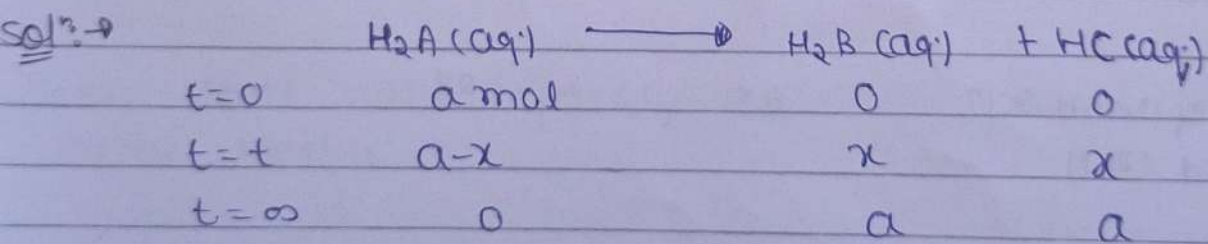 Solⁿ:→ H₂A (aq.) ⟶ H₂B (aq.) + HC (aq.)
t=0 a mol 0 0
t=t a-x x x
t=∞ 0 a a